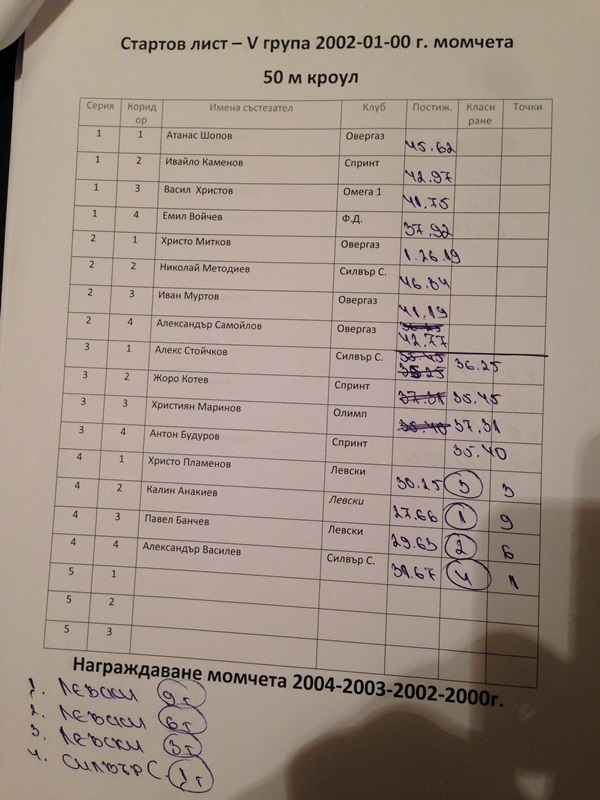 Стартов лист – V група 2002-01-00 г. момчета
50 м кроул
Серия Коридор Имена състезател Клуб Постиж. Класиране Точки
1 1 Атанас Шопов Овергаз 45.62
1 2 Ивайло Каменов Спринт 42.97
1 3 Васил Христов Омега 1 41.75
1 4 Емил Войчев Ф.Д. 37.92
2 1 Христо Митков Овергаз 1.26.19
2 2 Николай Методиев Силвър С. 46.04
2 3 Иван Муртов Овергаз 41.19
2 4 Александър Самойлов Овергаз 42.77
3 1 Алекс Стойчков Силвър С. 36.25
3 2 Жоро Котев Спринт 35.45
3 3 Християн Маринов Олимп 37.31
3 4 Антон Будуров Спринт 35.40
4 1 Христо Пламенов Левски 30.25 3 3
4 2 Калин Анакиев Левски 27.66 1 9
4 3 Павел Банчев Левски 29.63 2 6
4 4 Александър Василев Силвър С. 31.67 4 1
5 1
5 2
5 3
Награждаване момчета 2004-2003-2002-2000г.
1. Левски 9т
2. Левски 6т
3. Левски 3т
4. Силвър С. 1т